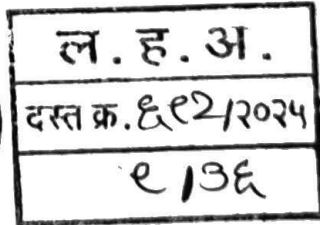 ल. ह. अ.
दस्त क्र. ६९२/२०२५
९/३६